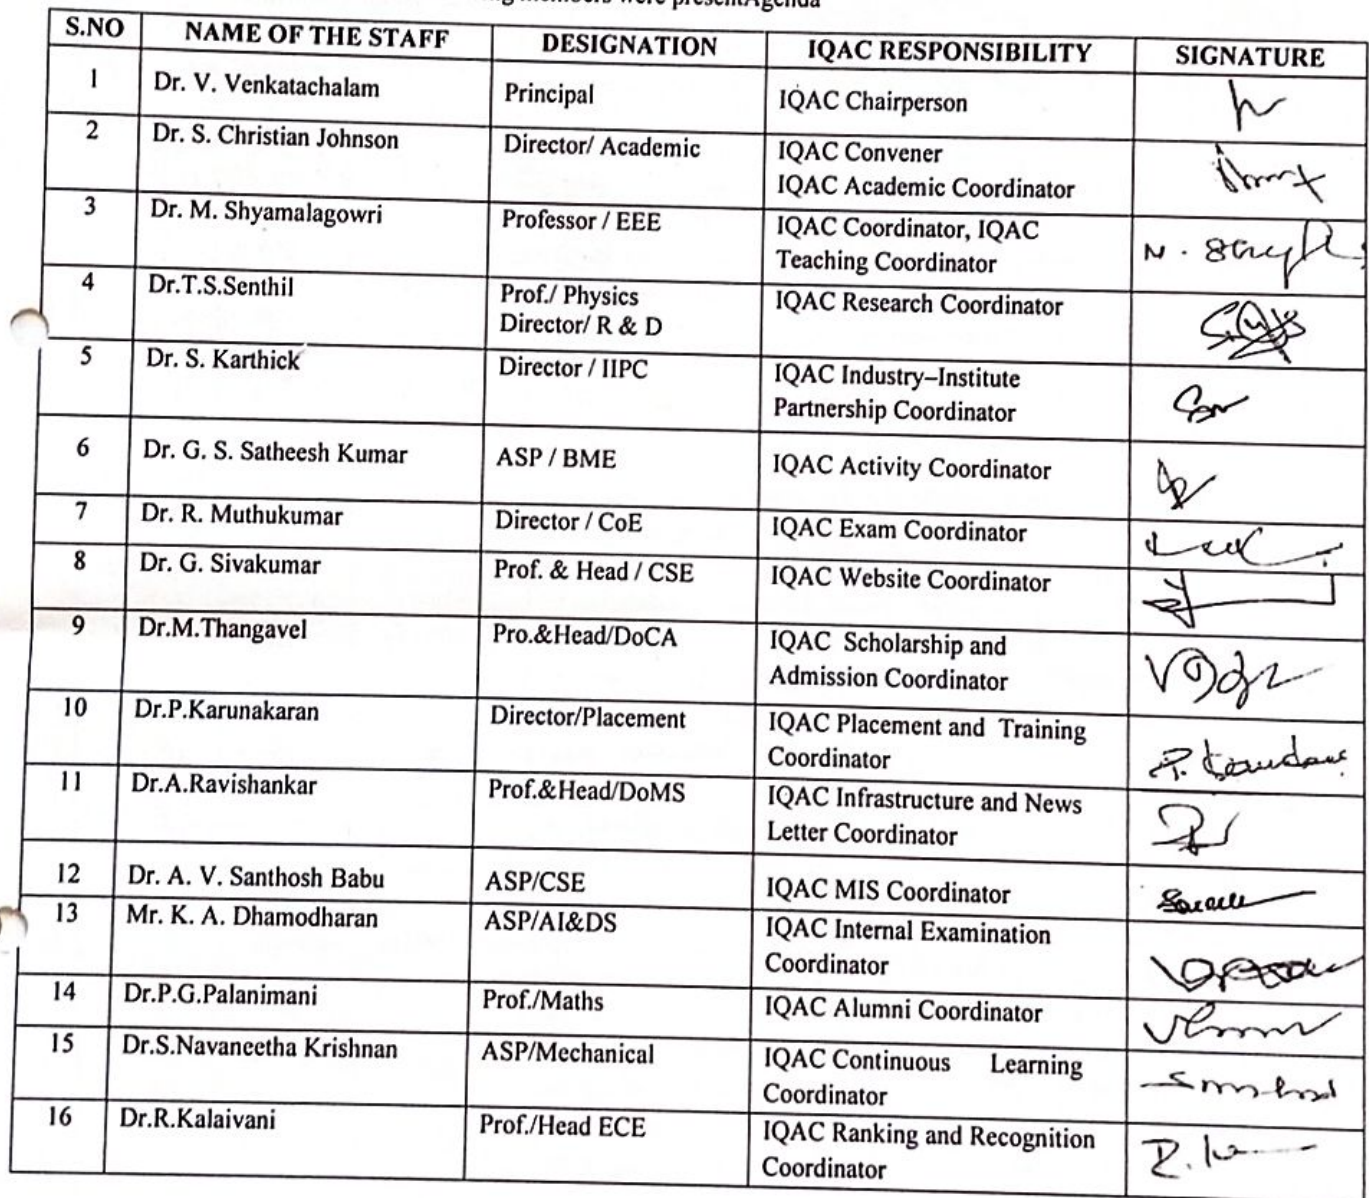 members were presentAgenda
S.NO NAME OF THE STAFF DESIGNATION IQAC RESPONSIBILITY SIGNATURE
1 Dr. V. Venkatachalam Principal IQAC Chairperson
2 Dr. S. Christian Johnson Director/ Academic IQAC Convener
IQAC Academic Coordinator
3 Dr. M. Shyamalagowri Professor / EEE IQAC Coordinator, IQAC
Teaching Coordinator
4 Dr.T.S.Senthil Prof./ Physics IQAC Research Coordinator
Director/ R & D
5 Dr. S. Karthick Director / IIPC IQAC Industry–Institute
Partnership Coordinator
6 Dr. G. S. Satheesh Kumar ASP / BME IQAC Activity Coordinator
7 Dr. R. Muthukumar Director / CoE IQAC Exam Coordinator
8 Dr. G. Sivakumar Prof. & Head / CSE IQAC Website Coordinator
9 Dr.M.Thangavel Pro.&Head/DoCA IQAC Scholarship and
Admission Coordinator
10 Dr.P.Karunakaran Director/Placement IQAC Placement and Training
Coordinator
11 Dr.A.Ravishankar Prof.&Head/DoMS IQAC Infrastructure and News
Letter Coordinator
12 Dr. A. V. Santhosh Babu ASP/CSE IQAC MIS Coordinator
13 Mr. K. A. Dhamodharan ASP/AI&DS IQAC Internal Examination
Coordinator
14 Dr.P.G.Palanimani Prof./Maths IQAC Alumni Coordinator
15 Dr.S.Navaneetha Krishnan ASP/Mechanical IQAC Continuous Learning
Coordinator
16 Dr.R.Kalaivani Prof./Head ECE IQAC Ranking and Recognition
Coordinator